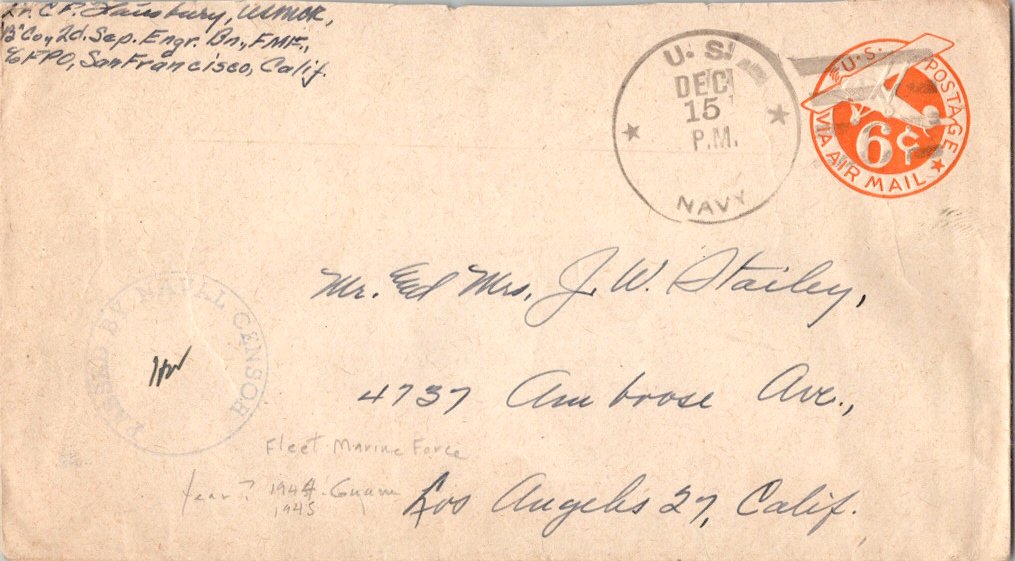 Lt. C.F. Stansbury, USMCR,
"B" Co., 2d. Sep. Engr. Bn., FMF.,
℅ FPO, San Francisco, Calif.
U. S.
DEC
15
P.M.
NAVY
U.S. POSTAGE
6¢
VIA AIR MAIL
Mr. Ed Mrs. J. W. Stailey,
PASSED BY NAVAL CENSOR
4737 Ambrose Ave.,
Fleet Marine Force
Year? 1944 - Guam
1945
Los Angeles 27, Calif.